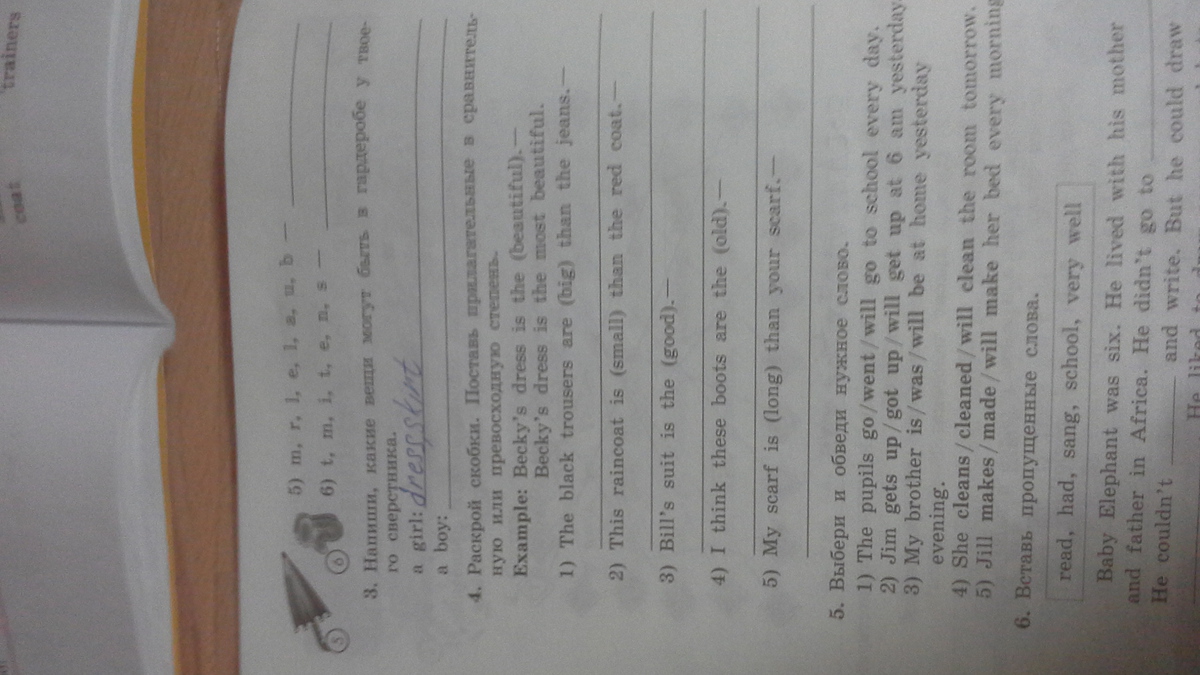 trainers
coat
5) m, r, l, e, l, a, u, b —
6) t, m, i, t, e, n, s —
5
6
3. Напиши, какие вещи могут быть в гардеробе у твое-
го сверстника.
a girl: dress skirt
a boy:
4. Раскрой скобки. Поставь прилагательные в сравнитель-
ную или превосходную степень.
Example: Becky's dress is the (beautiful).—
Becky's dress is the most beautiful.
1) The black trousers are (big) than the jeans.—
2) This raincoat is (small) than the red coat.—
3) Bill's suit is the (good).—
4) I think these boots are the (old).—
5) My scarf is (long) than your scarf.—
5. Выбери и обведи нужное слово.
1) The pupils go/went/will go to school every day.
2) Jim gets up/got up/will get up at 6 am yesterday
3) My brother is/was/will be at home yesterday
evening.
4) She cleans/cleaned/will clean the room tomorrow.
5) Jill makes/made/will make her bed every morning
6. Вставь пропущенные слова.
read, had, sang, school, very well
Baby Elephant was six. He lived with his mother
and father in Africa. He didn't go to
He couldn't and write. But he could draw
He liked